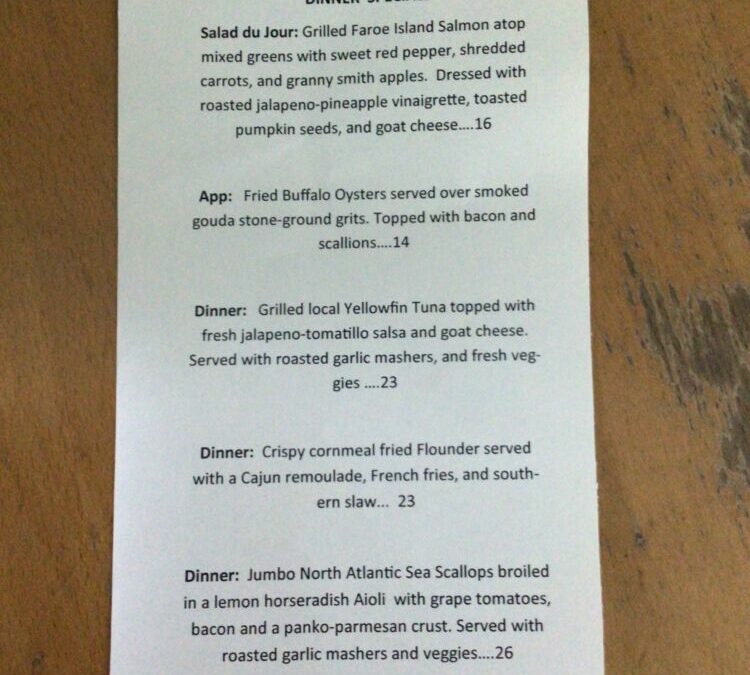 Salad du Jour: Grilled Faroe Island Salmon atop
mixed greens with sweet red pepper, shredded
carrots, and granny smith apples.  Dressed with
roasted jalapeno-pineapple vinaigrette, toasted
pumpkin seeds, and goat cheese....16
App:   Fried Buffalo Oysters served over smoked
gouda stone-ground grits. Topped with bacon and
scallions....14
Dinner:   Grilled local Yellowfin Tuna topped with
fresh jalapeno-tomatillo salsa and goat cheese.
Served with roasted garlic mashers, and fresh veg-
gies ....23
Dinner:  Crispy cornmeal fried Flounder served
with a Cajun remoulade, French fries, and south-
ern slaw...  23
Dinner:  Jumbo North Atlantic Sea Scallops broiled
in a lemon horseradish Aioli  with grape tomatoes,
bacon and a panko-parmesan crust. Served with
roasted garlic mashers and veggies....26